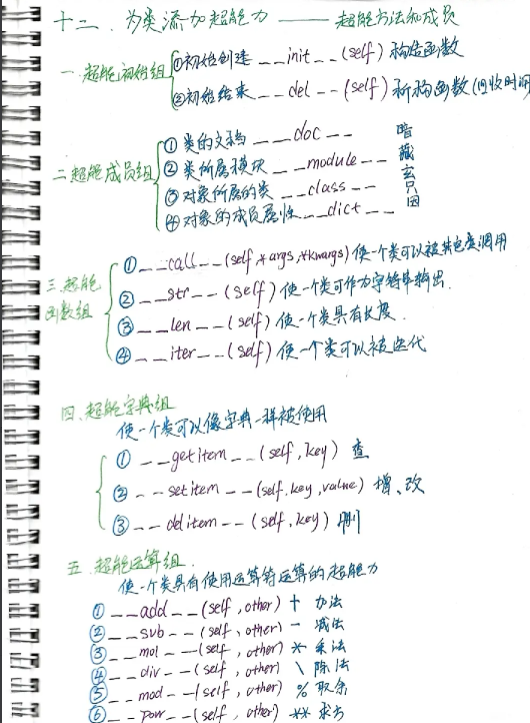 十二、为类添加超能力——超能方法和成员
一.超能初始组
①初始创建 __init__(self) 构造函数
②初始结束 __del__(self) 析构函数(回收时调
二.超能成员组
①类的文档 __doc__
②类所属模块 __module__
③对象所属的类 __class__
④对象的成员属性 __dict__
暗藏玄只因
三.超能函数组
①__call__(self,*args,**kwargs)使一个类可以被其它类调用
②__str__(self)使一个类可作为字符串输出.
③__len__(self)使一个类具有长度.
④__iter__(self)使一个类可以被迭代
四.超能字典组
使一个类可以像字典一样被使用
①__getitem__(self,key) 查
②__setitem__(self,key,value) 增、改
③__delitem__(self,key) 删
五.超能运算组.
使一个类具有使用运算符运算的超能力
①__add__(self,other) + 加法
②__sub__(self,other) - 减法
③__mol__(self,other) * 乘法
④__div__(self,other) \ 除法
⑤__mod__(self,other) % 取余
⑥__pow__(self,other) ** 求方